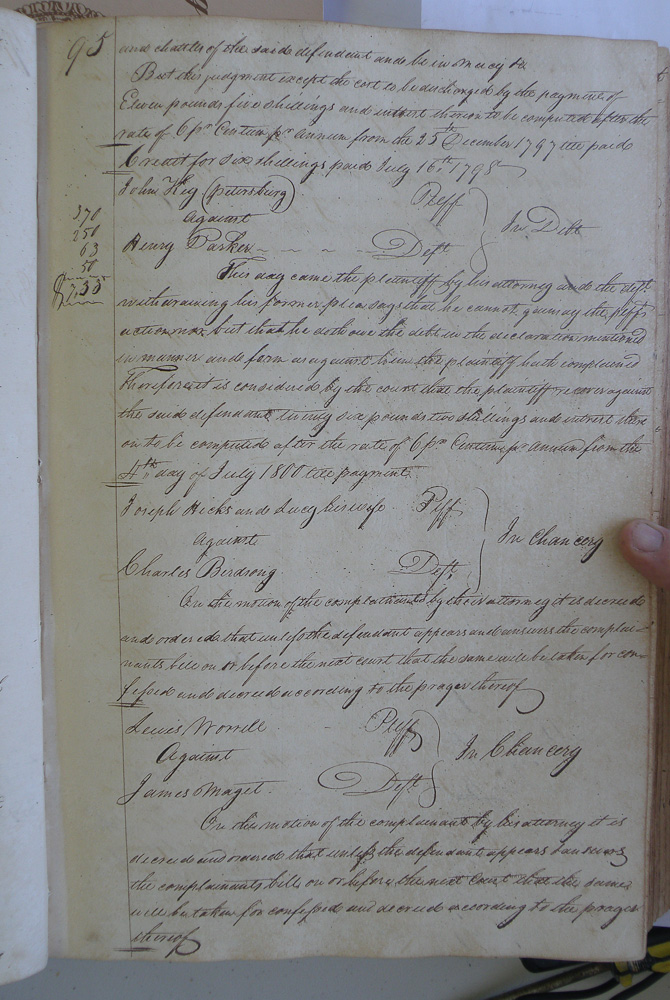 95
and chattles of the said defendant and be in mercy &c
But this judgment except the cost to be discharged by the payment of
Eleven pounds five shillings and interest thereon to be computed after the
rate of 6 pr Centum pr annum from the 25th December 1797 till paid
Credit for six shillings paid July 16th 1798
John Hay (petersburg) Plff
against In Debt
Henry Parker Deft
370
250
63
50
$7.33
This day came the plaintiff by his attorney and the deft
withdrawing his former plea says that he cannot gainsay the plffs
action nor but that he doth owe the debt in the declaration mentioned
in manner and form as against him the plaintiff hath complained
Therefore it is considered by the court that the plaintiff recover against
the said defendant twenty six pounds two shillings and interest there
on to be computed after the rate of 6 pr Centum pr annum from the
4th day of July 1800 till payment
Joseph Hicks and Lucy his wife Plff
against In Chancery
Charles Birdsong Deft.
On the motion of the complainants by their attorney it is decreed
and ordered that unless the defendant appears and answers the complai-
nants bill on or before the next court that the same will be taken for con-
fessed and decreed according to the prayer thereof
Lewis Worrell Plff
Against In Chancery
James Maget Deft
On the motion of the complainant by his attorney it is
decreed and ordered that unless the defendant appears & answers
the complainants bill on or before the next Court that the same
will be taken for confessed and decreed according to the prayer
thereof